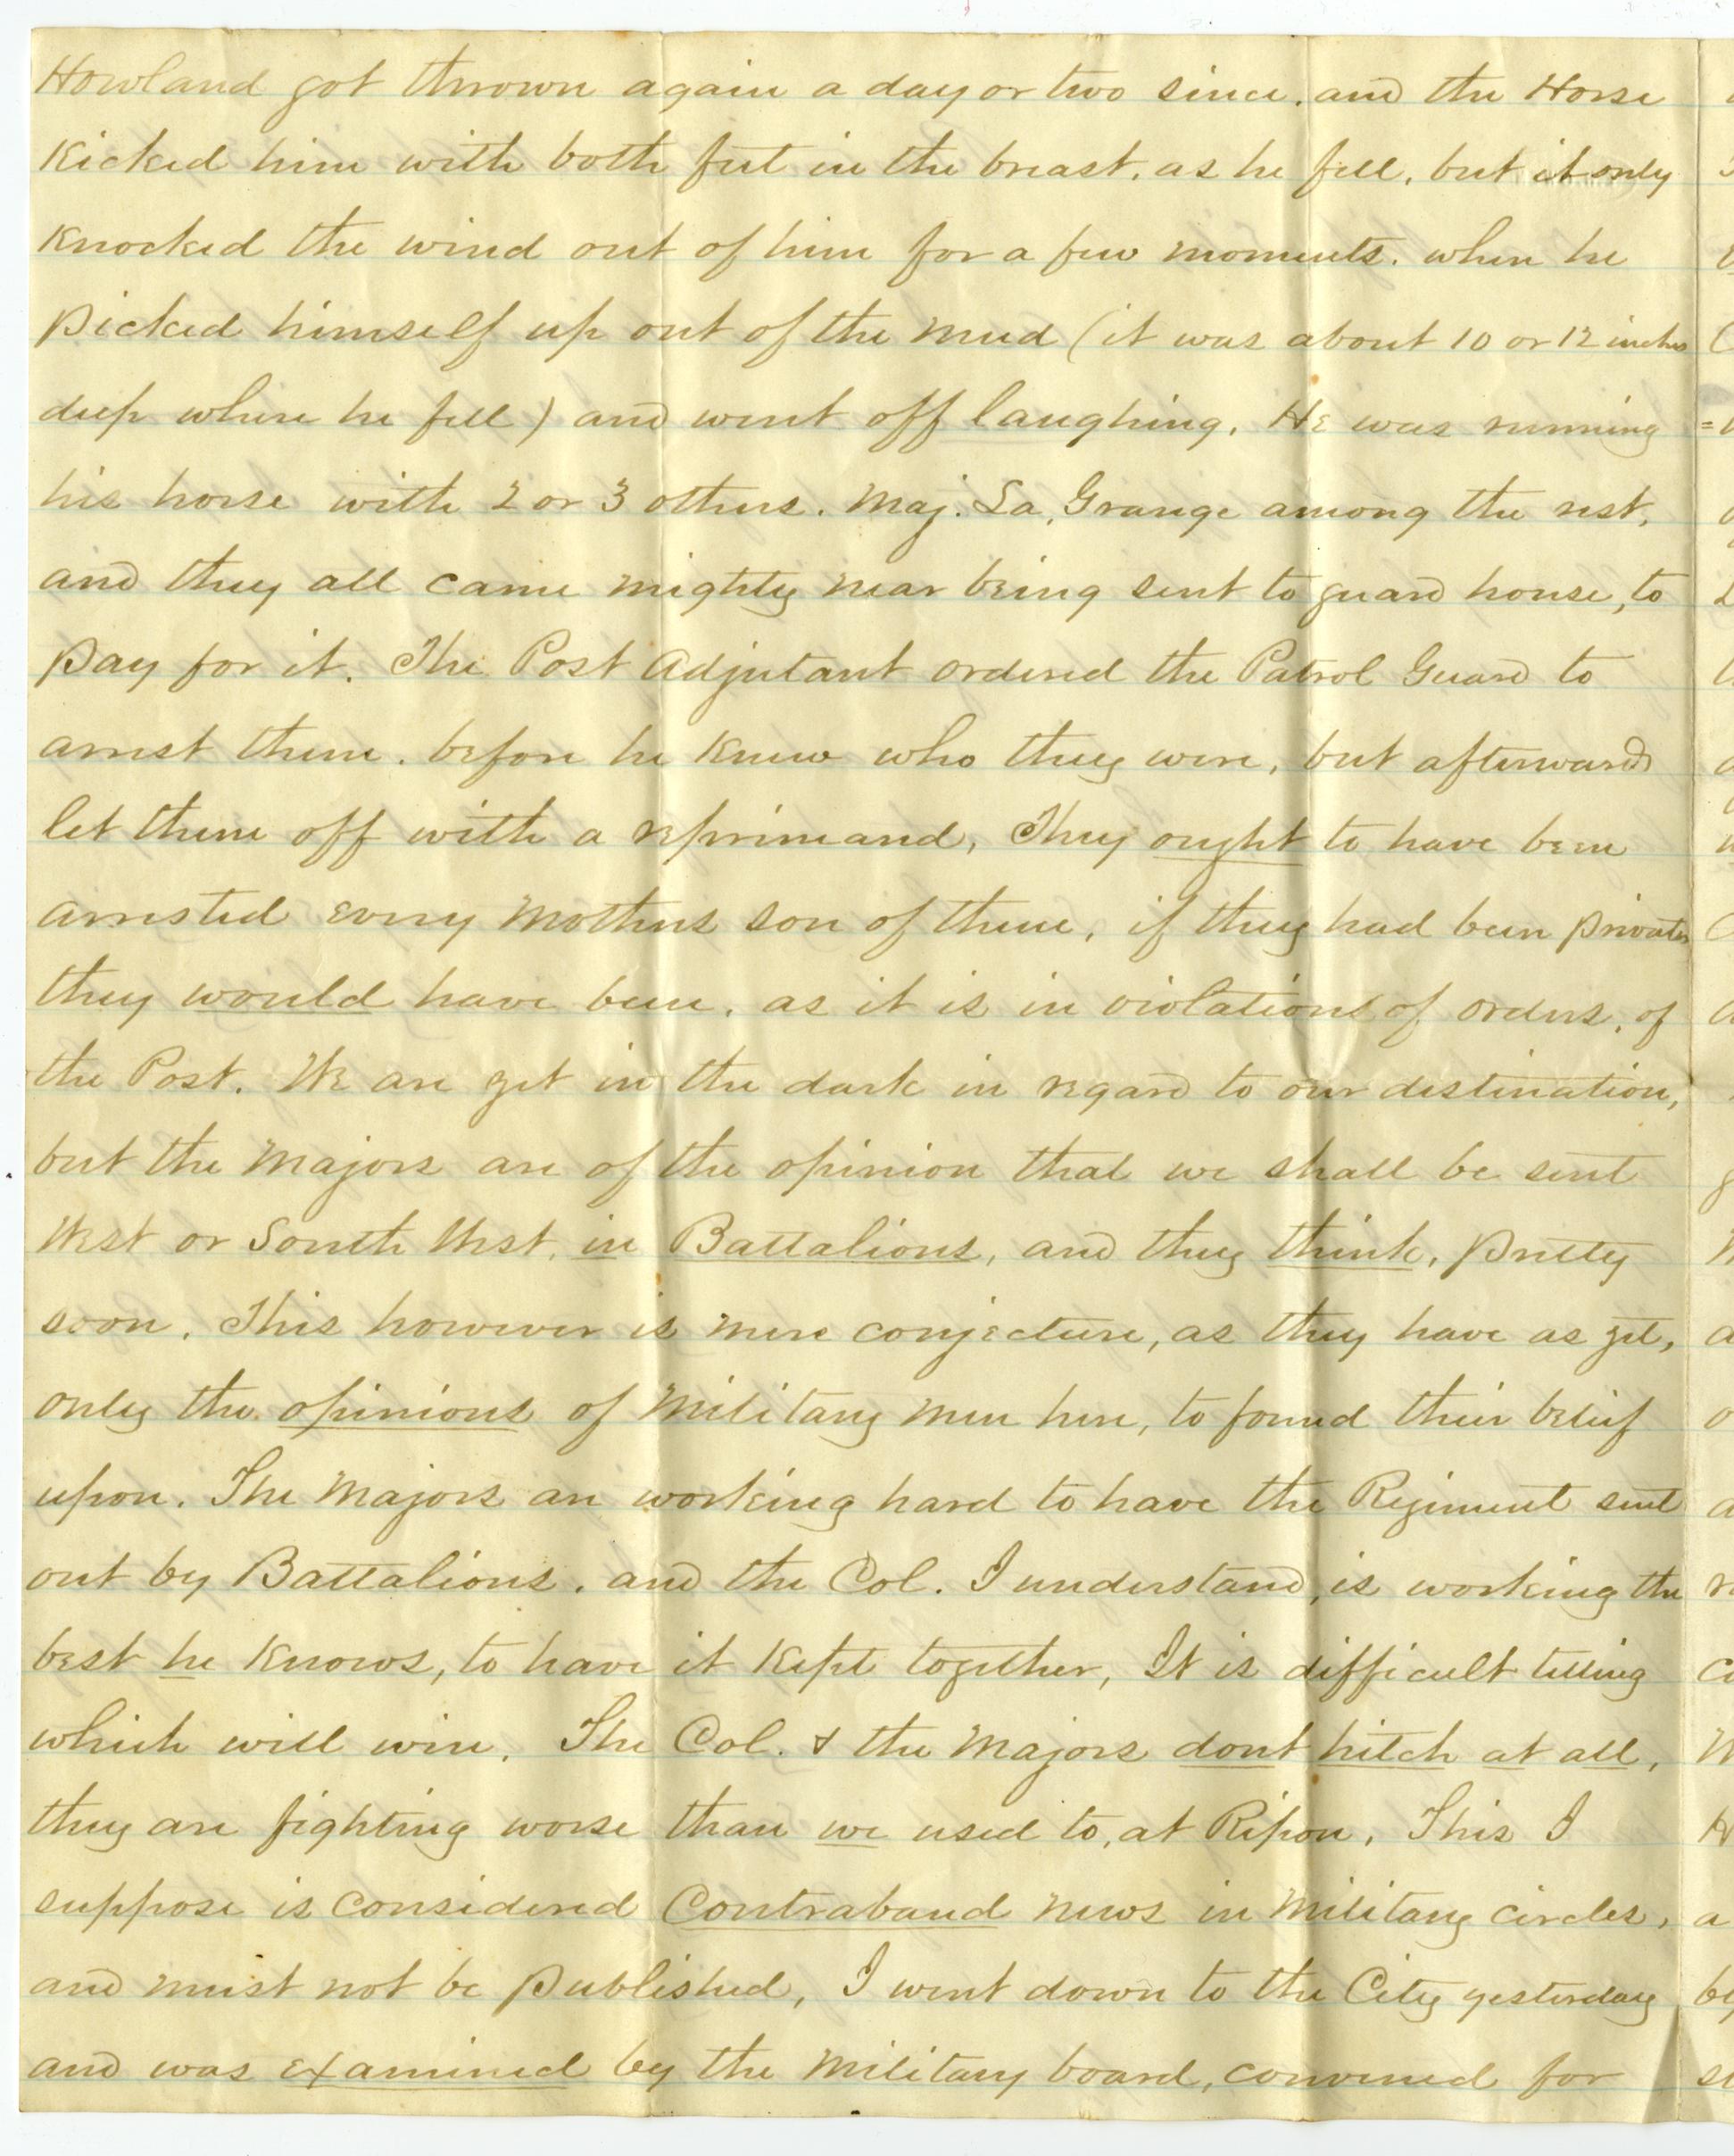 Howland got thrown again a day or two since. and the Horse
Kicked him with both feet in the breast. as he fell. but it only
Knocked the wind out of him for a few moments. when he
picked himself up out of the mud (it was about 10 or 12 inches
deep where he fell) and went off laughing. He was running
his horse with 2 or 3 others. Maj. La. Grange among the rest.
and they all came mighty near being sent to guard house, to
pay for it. The Post Adjutant ordered the Patrol Guard to
arrest them. before he knew who they were, but afterwards
let them off with a reprimand, They ought to have been
arrested every mothers son of them, if they had been privates
they would have been. as it is in violations of orders. of
the Post. We are yet in the dark in regard to our destination,
but the Majors are of the opinion that we shall be sent
West or South West. in Battalions, and they think, pretty
soon. This however is mere conjecture, as they have as yet,
only the opinions of Military men here, to found their belief
upon. The Majors are working hard to have the Regiment sent
out by Battalions. and the Col. I understand, is working the
best he knows, to have it Kept together, It is difficult telling
which will win. The Col. & the Majors dont hitch at all,
they are fighting worse than we used to, at Ripon. This I
suppose is considered Contraband news in Military circles,
and must not be published, I went down to the City yesterday
and was examined by the Military board, convened for